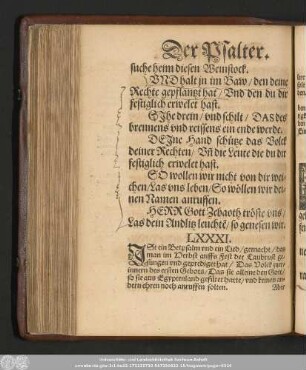 Der Psalter.
suche heim diesen Weinstock.
VND halt jn im Baw / den deine
Rechte gepflantzt hat / Vnd den du dir
festiglich erwelet hast.
SJhe drein / vnd schilt / DAS des
brennens vnd reissens ein ende werde.
DEJne Hand schütze das Volck
deiner Rechten / Vñ die Leute die du dir
festiglich erwelet hast.
SO wollen wir nicht von dir wei-
chen / Las vns leben / So wöllen wir dei-
nen Namen anruffen.
HERR Gott Zebaoth tröste vns /
Las dein Andlitz leuchtē / so genesen wir.
LXXXI.
JSt ein Betpsalm vnd ein Lied / gemacht / das
man im Herbst auffs Fest der Laubrust ge-
sungen vnd geprediget hat / Das Volck zu er-
innern des ersten Gebots / Das sie alleine den Gott /
so sie aus Egyptenland gefüret hatte / vnd keinen an-
dern ehren noch anruffen solten.